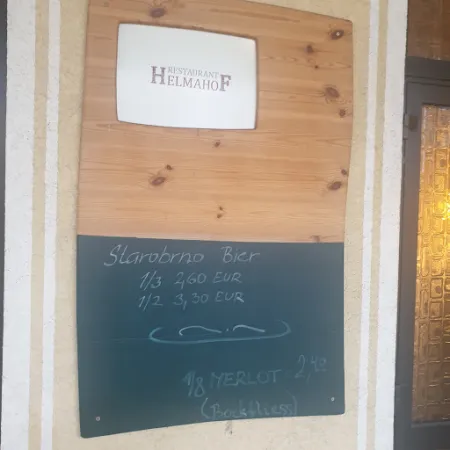 RESTAURANT
HELMAHOF
Starobrno Bier
1/3 2,60 EUR
1/2 3,30 EUR
1/8 MERLOT 2,40